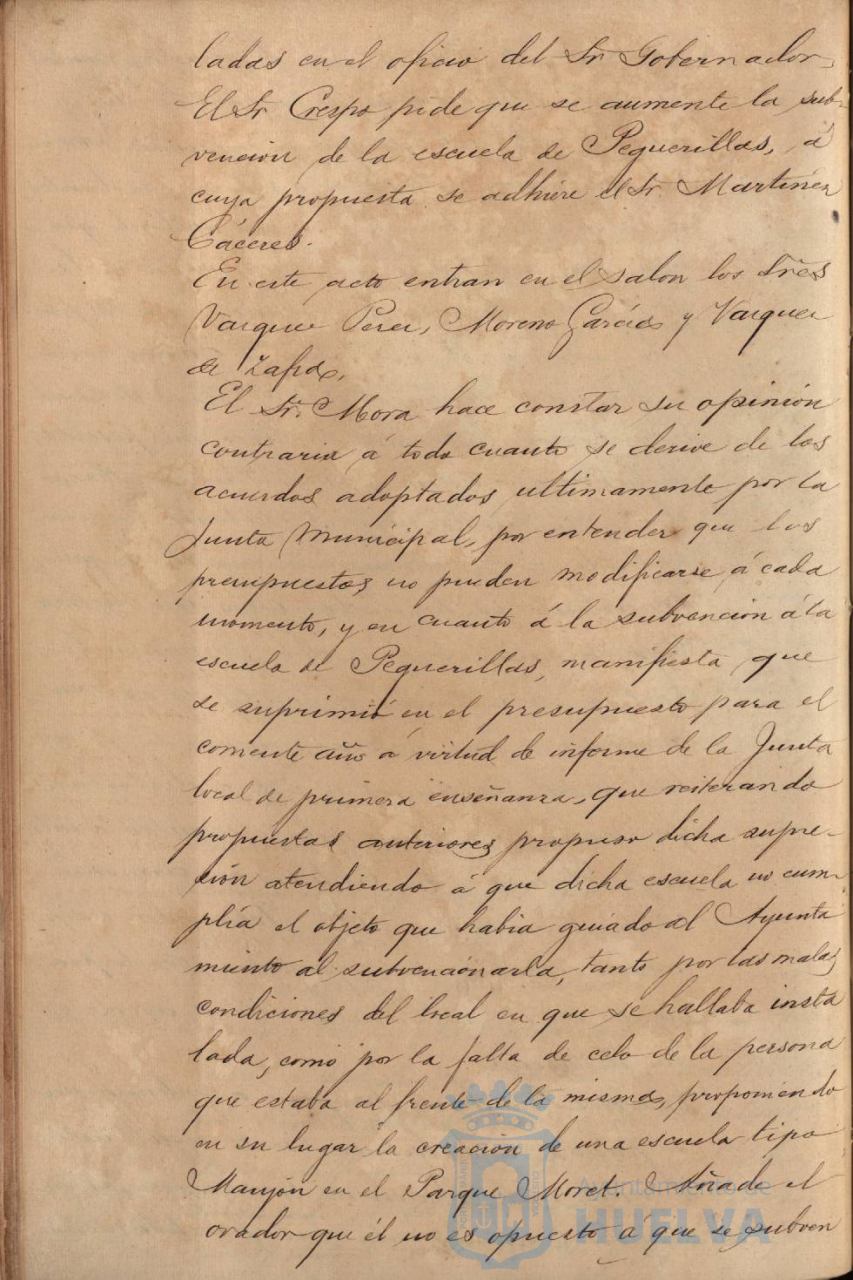 ladas en el oficio del Sr Gobernador,
El Sr Crespo pide que se aumente la sub-
vencion de la escuela de Pequerillas, á
cuya propuesta se adhiere el Sr. Martinez
Cáceres.
En este acto entran en el salon los Sres
Vazquez Perez, Moreno Garcia y Vazquez
de Zafra.
El Sr. Mora hace constar su opinión
contraria á todo cuanto se derive de los
acuerdos adoptados ultimamente por la
Junta Municipal, por entender que los
presupuestos no pueden modificarse á cada
momento, y en cuanto á la subvencion á la
escuela de Pequerillas, manifiesta que
se suprimió en el presupuesto para el
corriente año á virtud de informe de la Junta
local de primera enseñanza, que reiterando
propuestas anteriores propuso dicha supre-
sión atendiendo á que dicha escuela no cum-
plía el objeto que habia guiado al Ayunta
miento al subvencionarla, tanto por las malas
condiciones del local en que se hallaba insta
lada, como por la falta de celo de la persona
que estaba al frente de la misma, proponiendo
en su lugar la creación de una escuela tipo
Manjón en el Parque Moret. Añade el
orador que él no es opuesto á que se subven
Ayuntamiento de
HUELVA